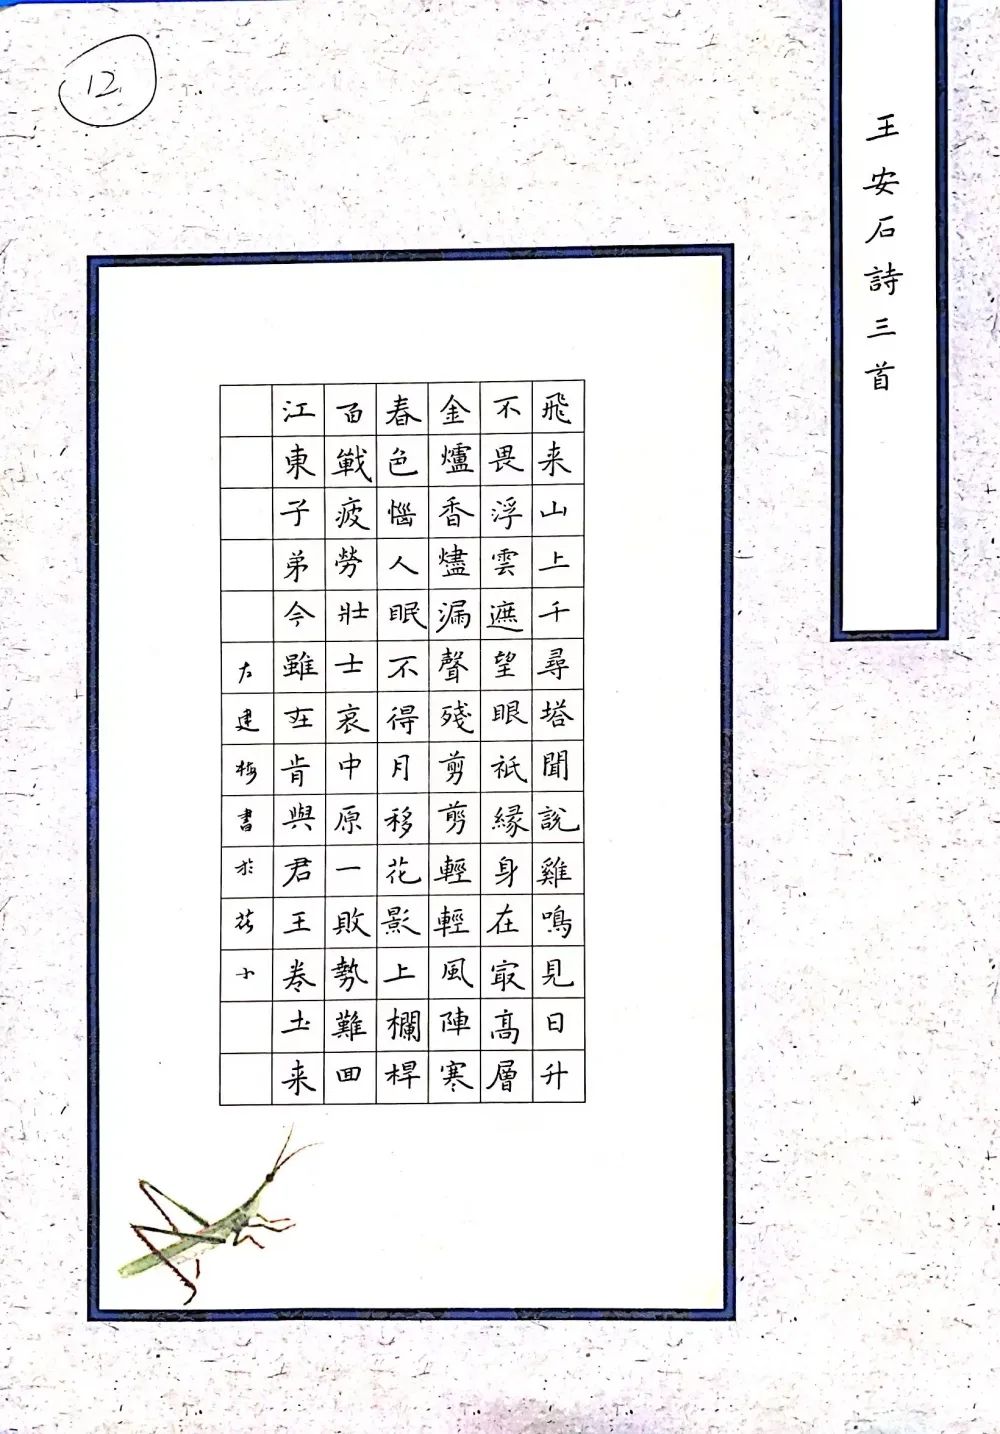 12
王安石詩三首
飛来山上千尋塔聞説雞鳴見日升
不畏浮雲遮望眼祇縁身在冣高層
金爐香燼漏聲殘剪剪輕輕風陣寒
春色惱人眠不得月移花影上欄桿
百戰疲勞壯士哀中原一敗勢難囬
江東子弟今雖在肯與君王卷土来
左建梅書於小